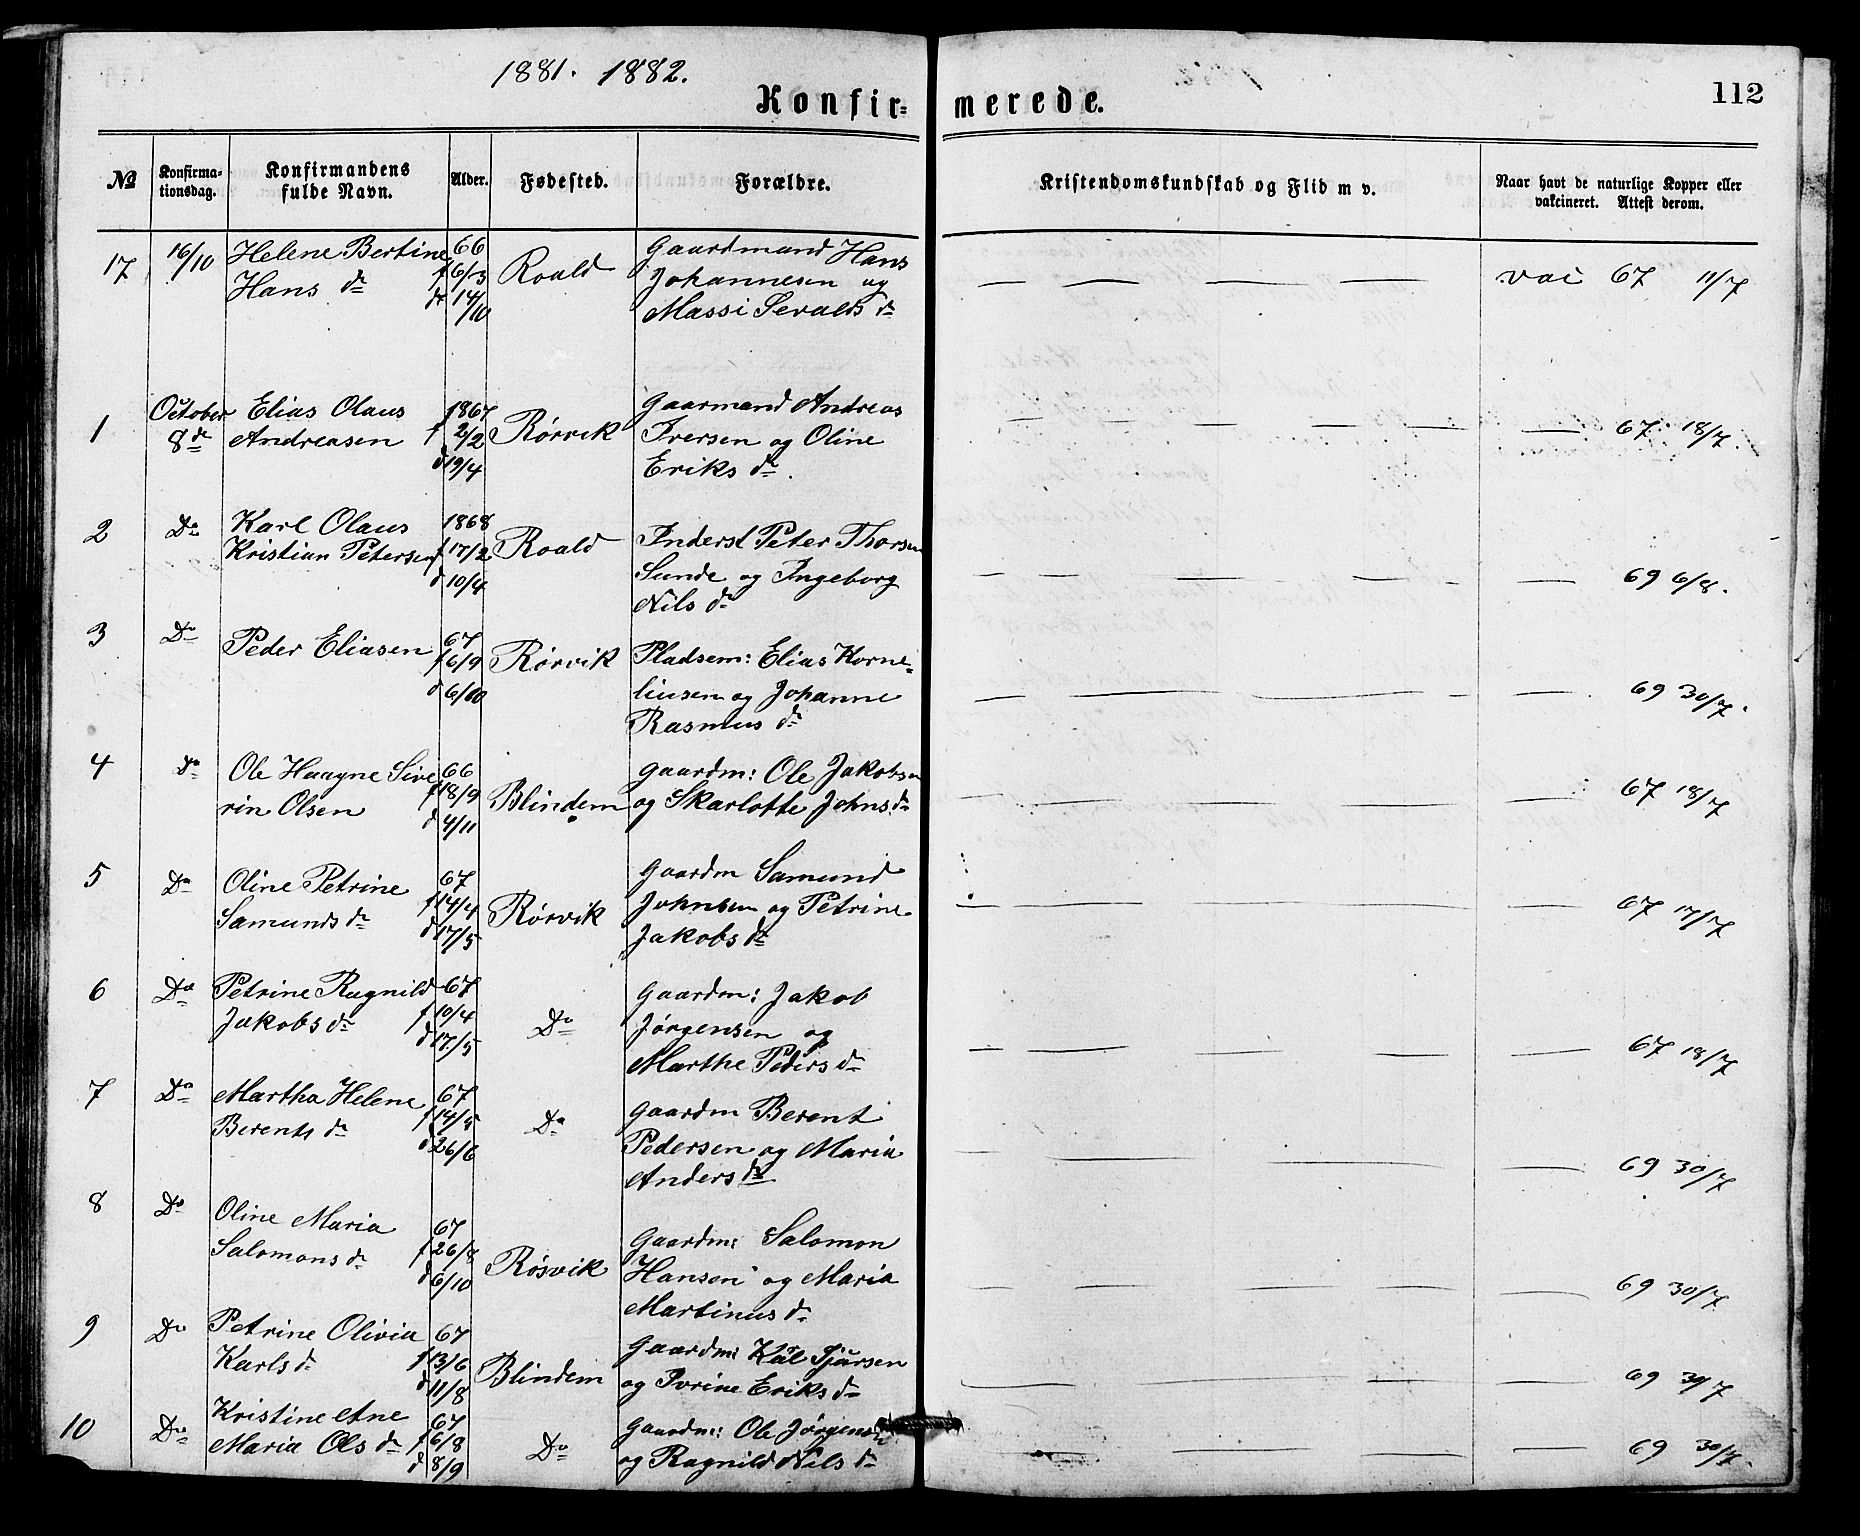 1881. 1882.
Konfir=merede.
112
No
Konfirma-
tionsdag.
Konfirmandens
fulde Navn.
Alder.
Fødested.
Forældre.
Kristendomskundskab og Flid m v.
Naar havt de naturlige Kopper eller
vakcineret. Attest derom.
17 16/10 Helene Bertine 66 Roald Gaardmand Hans vac 67 11/7
Hans dr f 6/3 Johannesen og
dt 14/10 Massi Sevalds dr
1 October Elias Olaus 1867 Rørvik Gaarmand Andreas 67 18/7
8de Andreasen f 2/2 Iversen og Oline
d 19/4 Eriks dr.
2 Do Karl Olaus 1868 Roald Inderst Peter Thorsen 69 6/8.
Kristian Petersen f 17/2 Sunde og Ingeborg
d 10/4 Nils dr
3 Do Peder Eliasen 67 Rørvik Pladsem: Elias Korne= 69 30/7.
f 6/9 liusen og Johanne
d 6/10 Rasmus dr
4 Do Ole Haagne Sive 66 Blindem gaardm: Ole Jakobsen 67 18/7
rin Olsen f 18/9 og Skarlotte Johns dr
d 4/11
5 Do Oline Petrine 67 Rørvik Gaardm Samund 67 17/7
Samunds dr f 14/4 Johnsen og Petrine
d 17/5 Jakobs dr
6 Do Petrine Ragnild 67 Do Gaardm: Jakob 67 18/7
Jakobs dr f 10/4 Jørgensen og
d 17/5 Marthe Peders dr
7 Do Martha Helene 67 Do Gaardm Berent 69 30/7
Berents dr f 14/5 Pedersen og Maria
d 26/6 Anders dr
8 Do Oline Maria 67 Røsvik Gaardm: Salomon 69 30/7
Salomons dr f 26/8 Hansen og Maria
d 6/10 Martinus dr
9 Do Petrine Olivia 67 Blindem Gaardm: Kal 69 30/7
Karls dr f 13/6 og Ivrine Eriks dr
d 11/8
10 Do Kristine Ane 67 Do Gaardm: Ole Jørgensen 69 30/7.
Maria Ols dr f 6/8 og Ragnild Nils dr
d 8/9